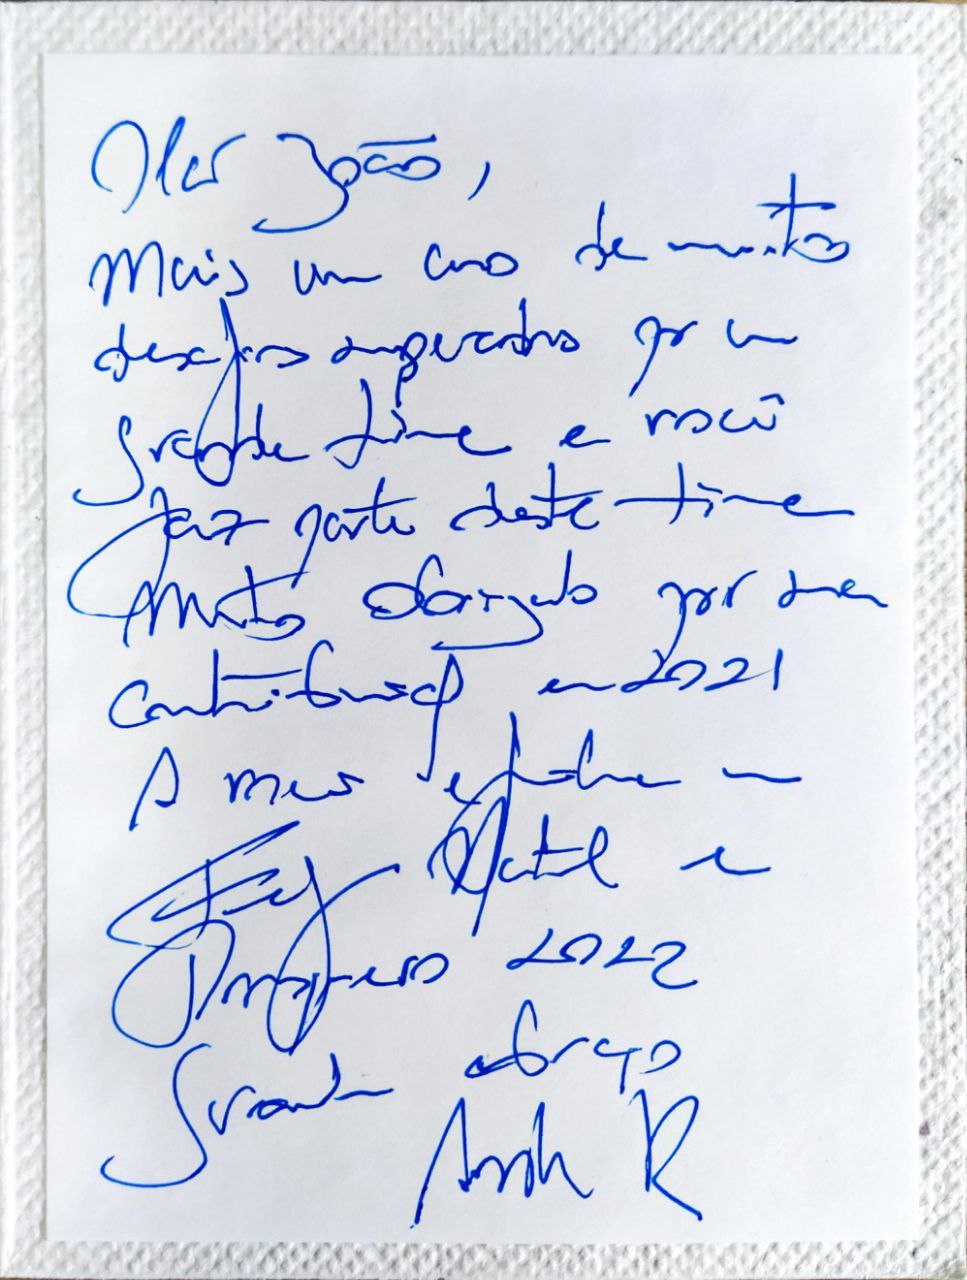 Olá João,
Mais um ano de muitos
desafios superados por um
grande time e você
faz parte deste time
Muito obrigado por sua
contribuição em 2021
A você e família um
Feliz Natal e
Prospero 2022
Grande abraço
R